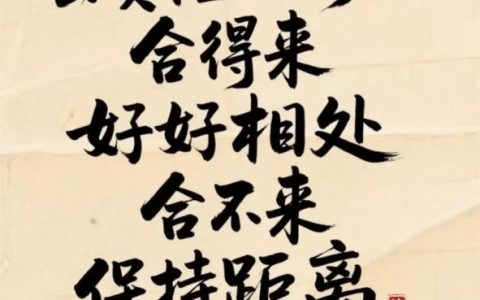 合得来
好好相处
合不来
保持距离